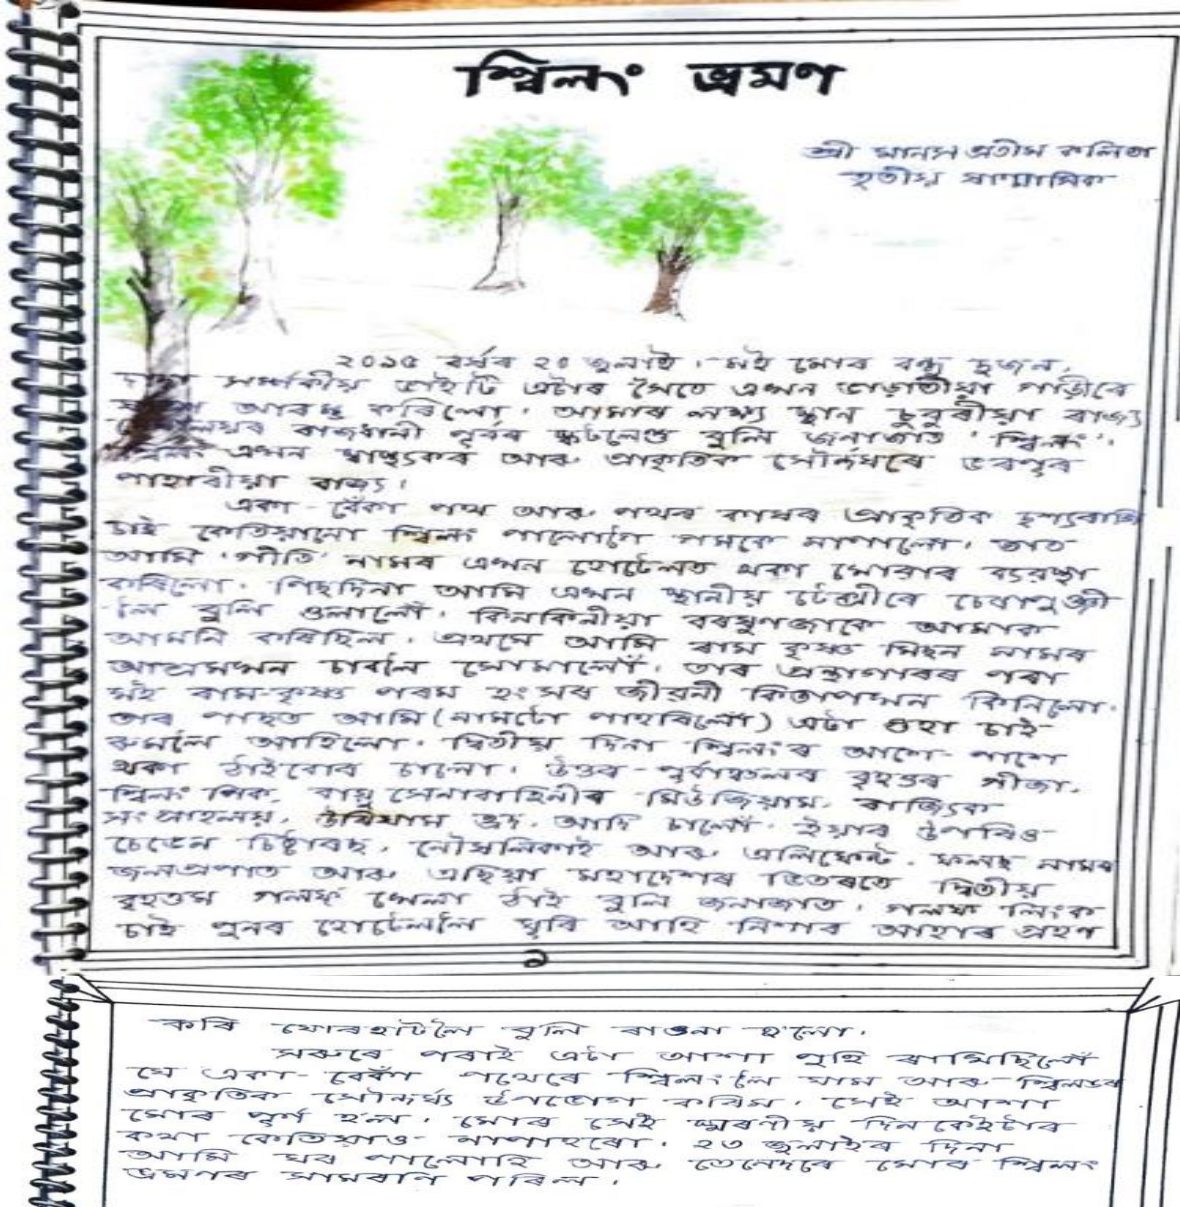 শ্বিলং ভ্ৰমণ
শ্ৰী মানস প্ৰতীম কলিতা
তৃতীয় ষাণ্মাসিক
২০১৫ বৰ্ষৰ ২০ জুলাই। মই মোৰ বন্ধু দুজন,
সম্পৰ্কীয় ভাইটি এটাৰ সৈতে এখন ভাড়াতীয়া গাড়ীৰে
আৰম্ভ কৰিলো। আমাৰ লক্ষ্য স্থান চুবুৰীয়া ৰাজ্য
ৰাজধানী পূৰ্বৰ স্কটলেণ্ড বুলি জনাজাত 'শ্বিলং'।
এখন স্বাস্থ্যকৰ আৰু প্ৰাকৃতিক সৌন্দৰ্যৰে ভৰপূৰ
পাহাৰীয়া ৰাজ্য।
একা-বেঁকা পথ আৰু পথৰ কাষৰ প্ৰাকৃতিক দৃশ্যৰাজি
চাই কেতিয়ানো শ্বিলং পালোগৈ গমকে নাপালো। তাত
আমি 'গীতি' নামৰ এখন হোটেলত থকা খোৱাৰ ব্যৱস্থা
কৰিলো। পিছদিনা আমি এখন স্থানীয় টেক্সীৰে চেৰাপুঞ্জী
লৈ বুলি ওলালোঁ। কিনকিনীয়া বৰষুণজাকে আমাক
আমনি কৰিছিল। প্ৰথমে আমি ৰাম কৃষ্ণ মিছন নামৰ
আশ্ৰমখন চাবলৈ সোমালোঁ। তাৰ গ্ৰন্থাগাৰৰ পৰা
মই ৰাম-কৃষ্ণ পৰম হংসৰ জীৱনী কিতাপখন কিনিলো।
তাৰ পাছত আমি (নামটো পাহৰিলোঁ) এটা গুহা চাই
ৰুমলৈ আহিলো। দ্বিতীয় দিনা শ্বিলংৰ আশে-পাশে
থকা ঠাইবোৰ চালো। উত্তৰ-পূৰ্বাঞ্চলৰ বৃহত্তৰ গীৰ্জা,
শ্বিলং পিক, বায়ু সেনাবাহিনীৰ মিউজিয়াম, ৰাজ্যিক
সংগ্ৰহালয়, উমিয়াম হ্ৰদ, আদি চালোঁ। ইয়াৰ উপৰিও
চেভেন চিষ্টাৰছ, নৌখলিকাই আৰু এলিফেন্ট ফলছ নামৰ
জলপ্ৰপাত আৰু এছিয়া মহাদেশৰ ভিতৰতে দ্বিতীয়
বৃহত্তম গলফ খেলা ঠাই বুলি জনাজাত। গলফ লিংক
চাই পুনৰ হোটেললৈ ঘূৰি আহি নিশাৰ আহাৰ গ্ৰহণ
১
কৰি যোৰহাটলৈ বুলি ৰাওনা হ'লো।
সৰুৰে পৰাই এটা আশা পুহি ৰাখিছিলোঁ
যে একা-বেকাঁ পথেৰে শ্বিলংলৈ যাম আৰু শ্বিলঙৰ
প্ৰাকৃতিক সৌন্দৰ্য্য উপভোগ কৰিম। সেই আশা
মোৰ পূৰ্ণ হ'ল। মোৰ সেই স্মৰণীয় দিন কেইটাৰ
কথা কেতিয়াও নাপাহৰো। ২৩ জুলাইৰ দিনা
আমি ঘৰ পালোহি আৰু তেনেদৰে মোৰ শ্বিলং
ভ্ৰমণৰ সামৰণি পৰিল।